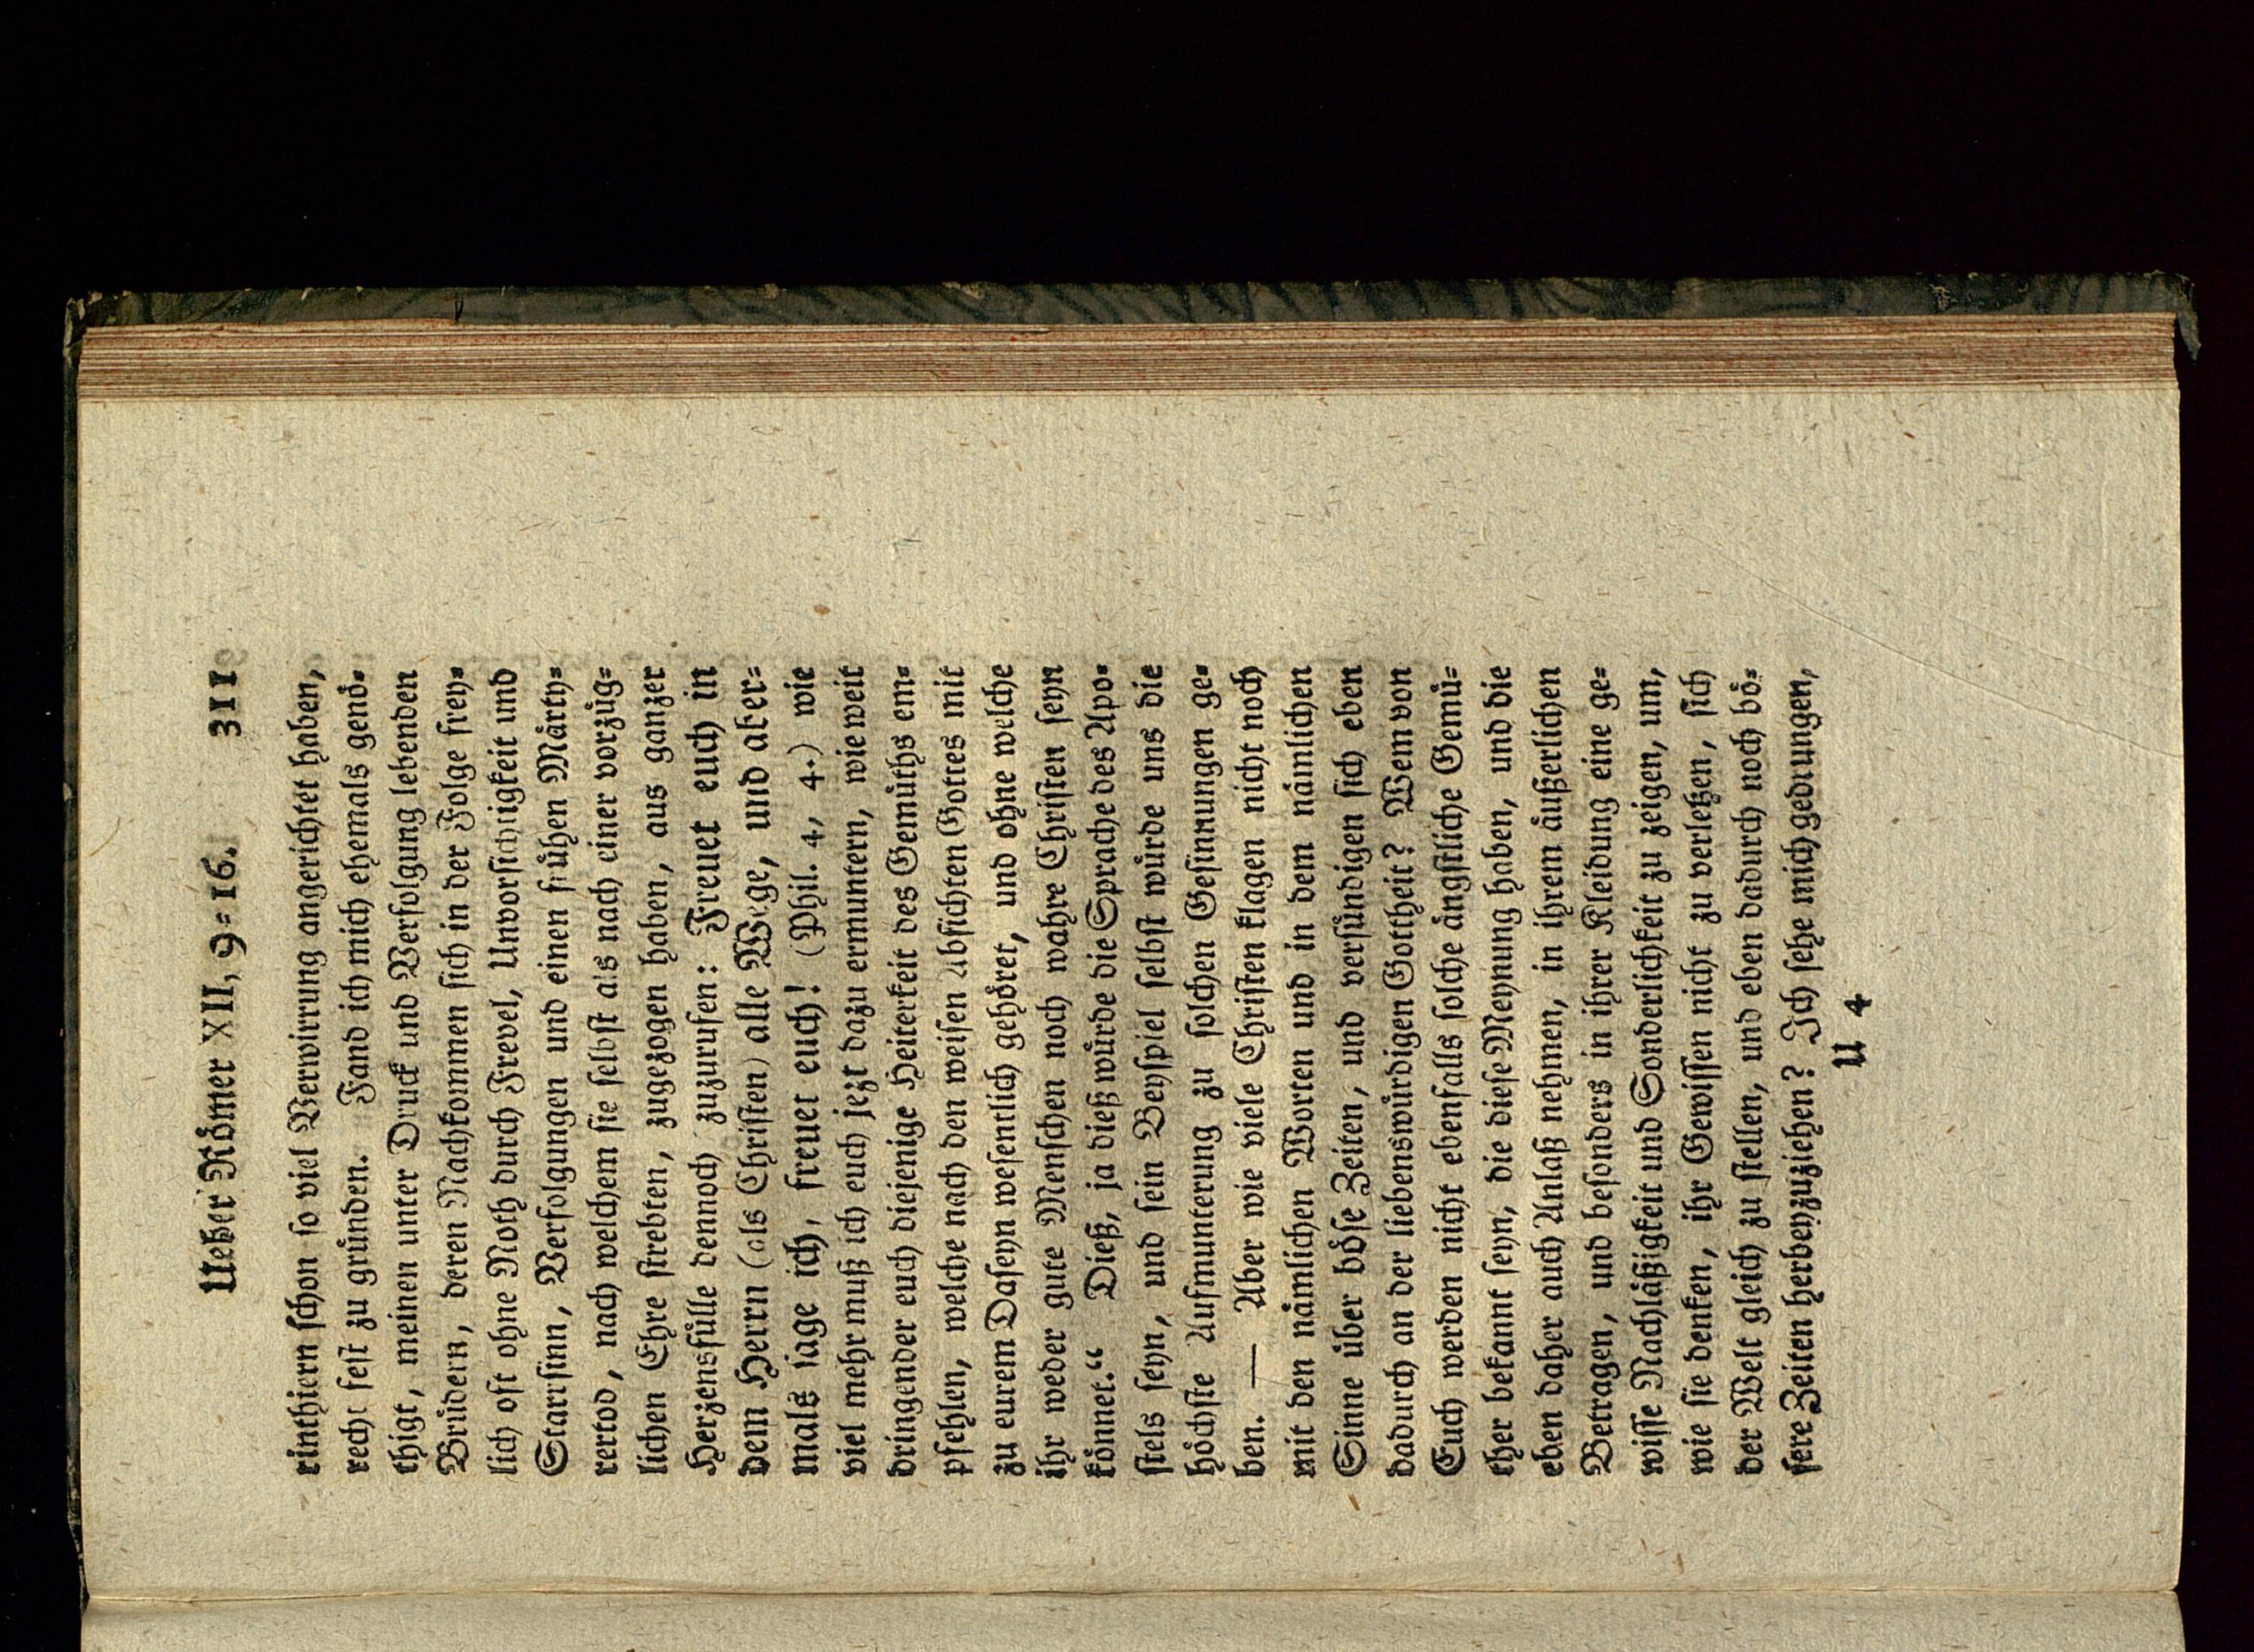 Ueber Römer XII, 9=16. 311
rinthiern schon so viel Verwirrung angerichtet haben,
recht fest zu gründen. Fand ich mich ehemals genö=
thigt, meinen unter Druck und Verfolgung lebenden
Brüdern, deren Nachkommen sich in der Folge frey=
lich oft ohne Noth durch Frevel, Unvorsichtigkeit und
Starrsinn, Verfolgungen und einen frühen Märty=
rertod, nach welchem sie selbst als nach einer vorzüg=
lichen Ehre strebten, zugezogen haben, aus ganzer
Herzensfülle dennoch zuzurufen: Freuet euch in
dem Herrn (als Christen) alle Wege, und aber=
mals sage ich, freuet euch! (Phil. 4, 4.) wie
viel mehr muß ich euch jezt dazu ermuntern, wie weit
dringender euch diejenige Heiterkeit des Gemüths em=
pfehlen, welche nach den weisen Absichten Gottes mit
zu eurem Daseyn wesentlich gehöret, und ohne welche
ihr weder gute Menschen noch wahre Christen seyn
könnet.“ Dieß, ja dieß würde die Sprache des Apo=
stels seyn, und sein Beyspiel selbst würde uns die
höchste Aufmunterung zu solchen Gesinnungen ge=
ben. — Aber wie viele Christen klagen nicht noch
mit den nämlichen Worten und in dem nämlichen
Sinne über böse Zeiten, und versündigen sich eben
dadurch an der liebenswürdigen Gottheit? Wem von
Euch werden nicht ebenfalls solche ängstliche Gemü=
ther bekannt seyn, die diese Meynung haben, und die
eben daher auch Anlaß nehmen, in ihrem äußerlichen
Betragen, und besonders in ihrer Kleidung eine ge=
wisse Nachläßigkeit und Sonderlichkeit zu zeigen, um,
wie sie denken, ihr Gewissen nicht zu verletzen, sich
der Welt gleich zu stellen, und eben dadurch noch bö=
sere Zeiten herbeyzuziehen? Ich sehe mich gedrungen,
U 4